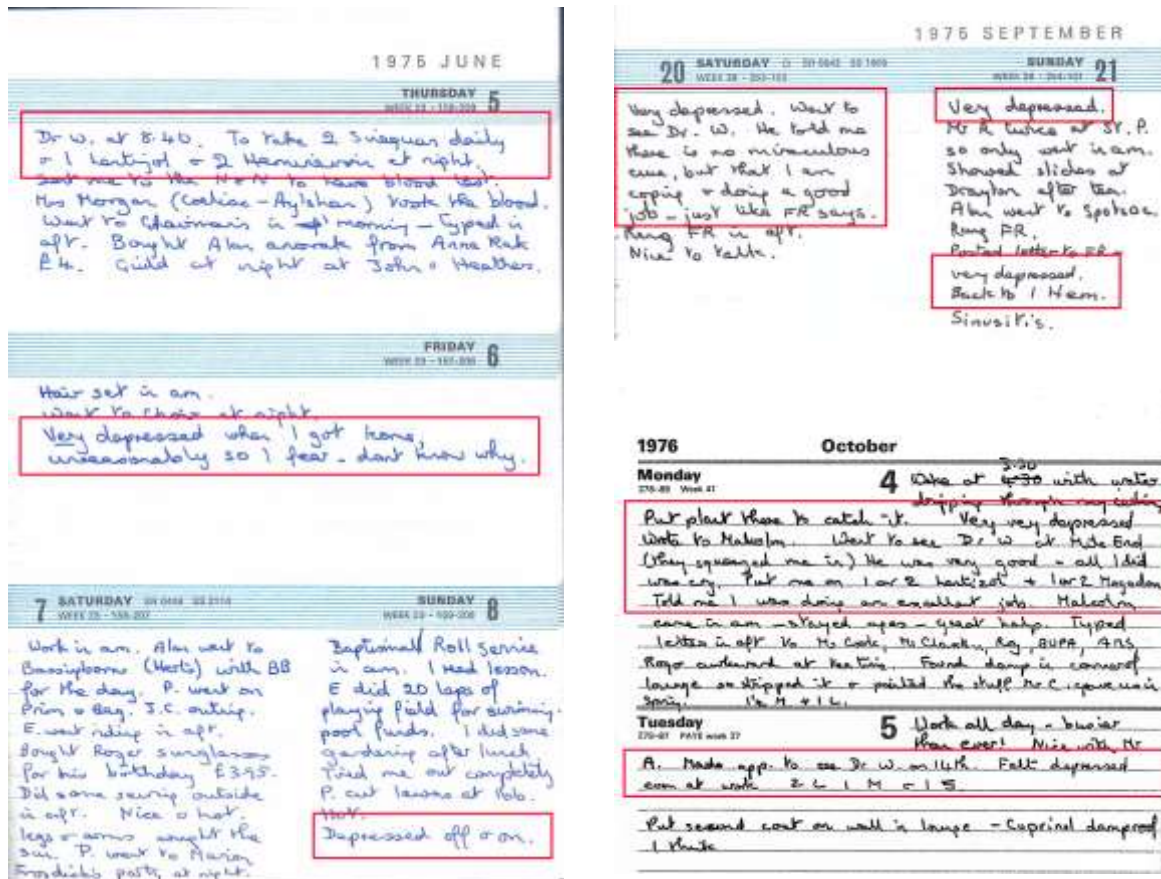 1975 JUNE
THURSDAY 5
Dr W. at 8.40. To take 2 Sinequan daily
+ 1 & 2 at night.
sent me to the N & N to have blood test.
Mrs Morgan (Coeliac - Aylsham) took the blood.
Went to in morning - Typed in
aft. Bought Alan anorak from Anna Kate
£4. Guild at night at John & Heathers.
FRIDAY 6
Hair set in am.
Went to Choir at night.
Very depressed when I got home,
unreasonably so I fear - dont know why.
7 SATURDAY
Work in am. Alan went to
Bassingborne (Herts) with BB
for the day. P. went on
Prim & Beg. J.C. outing.
E. went riding in aft.
Bought Roger sunglasses
for his birthday £3.95.
Did some sewing outside
in aft. Nice & hot.
legs & arms caught the
sun. P. went to Marion
party at night.
SUNDAY 8
Baptismal Roll service
in am. I read lesson.
E did 20 laps of
playing field for swimming
pool funds. I did some
gardening after lunch
Tired me out completely
P. cut lawns at lob.
Hot.
Depressed off & on.
1975 SEPTEMBER
20 SATURDAY
Very depressed. Went to
see Dr. W. He told me
there is no miraculous
cure, but that I am
coping & doing a good
job - just like FR says.
Rung FR in aft.
Nice to talk.
SUNDAY 21
Very depressed.
Mr R twice at St. P.
so only went in am.
Showed slides at
Drayton after tea.
Alan went to
Rung FR.
Posted letter to FR -
very depressed.
Back to 1 Nem.
Sinusitis.
1976 October
Monday 4 Woke at 3.30 4.30 with water
dripping through my ceiling
Put plant there to catch it. Very very depressed
Wrote to Malcolm. Went to see Dr W at Mile End
(they squeezed me in) He was very good - all I did
was cry. Put me on 1 or 2 + 1 or 2 Mogadon
Told me I was doing an excellent job. Malcolm
came in am - stayed ages - great help. Typed
letters in aft to Mr Cook, Mr Clark, Roy, BUPA,
Roger awkward at tea time. Found damp in corner of
lounge so stripped it & painted the stuff Mr C. gave us in
Spring. 1 M + 1 L.
Tuesday 5 Work all day - busier
than ever! Nice with Mr
A. Made app. to see Dr W. on 14th. Felt depressed
even at work 2 L 1 M - 1 S.
Put second coat on wall in lounge - Cuprinol dampproof
I think